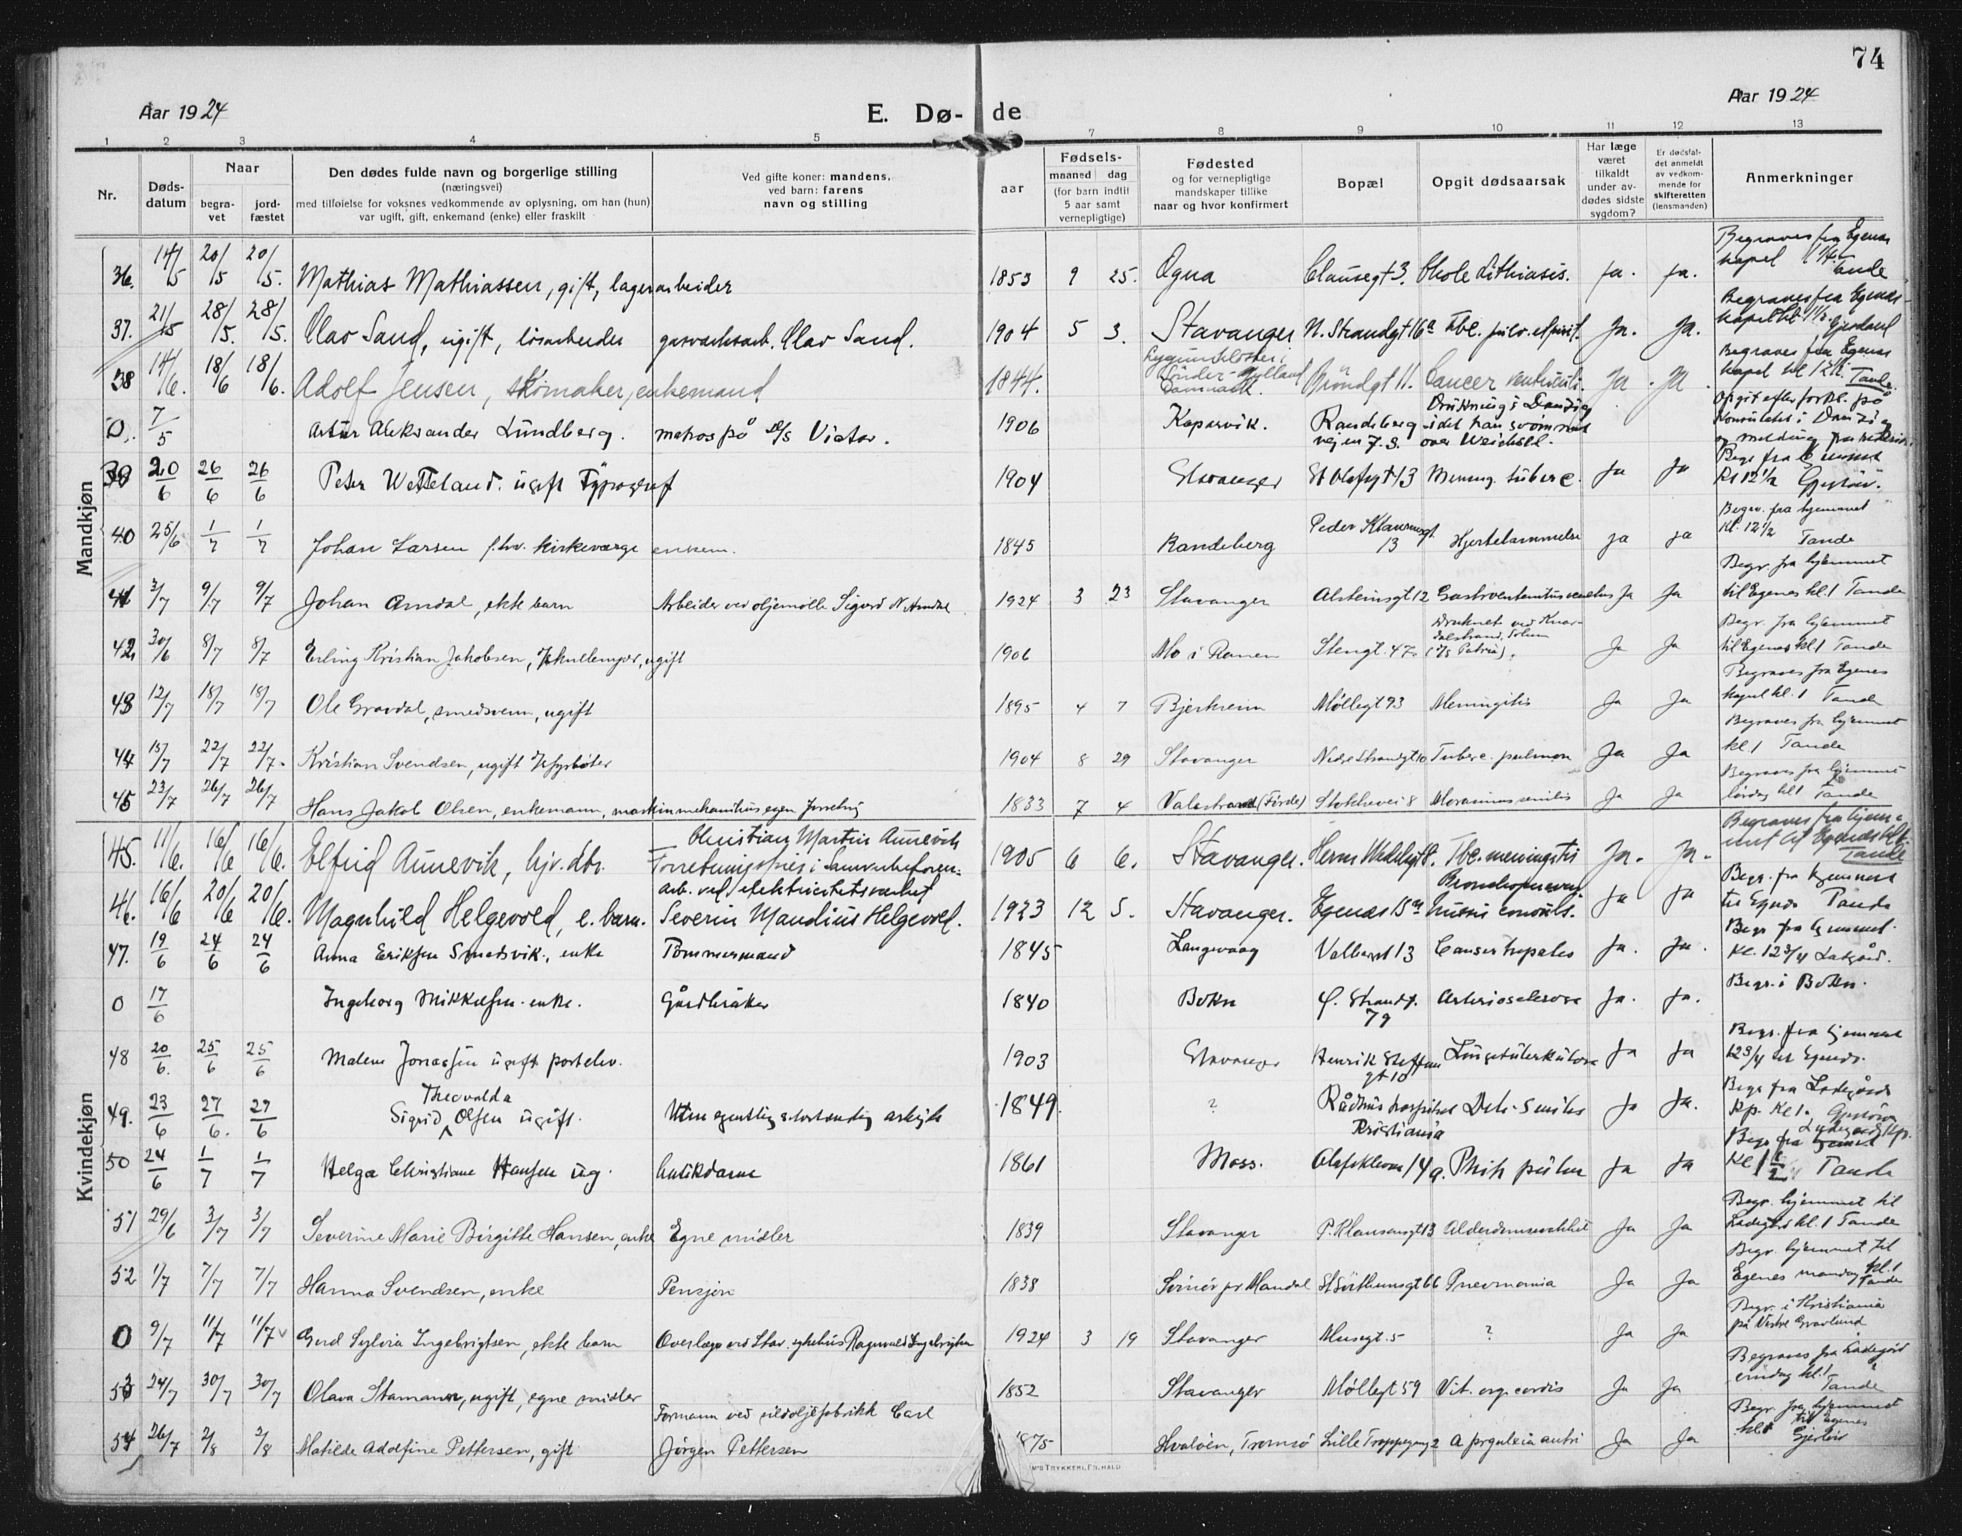 74
Aar 1924
E. Dø-
de
Aar 1924
1 2 3 4 5 6 7 8 9 10 11 12 13
Nr.
Døds-
datum
Naar
begra-
vet
jord-
fæstet
Den dødes fulde navn og borgerlige stilling
(næringsvei)
med tilføielse for voksnes vedkommende av oplysning, om han (hun)
var ugift, gift, enkemand (enke) eller fraskilt
Ved gifte koner: mandens,
ved barn: farens
navn og stilling
aar
Fødsels-
maaned dag
(for barn indtil
5 aar samt
vernepligtige)
Fødested
og for vernepligtige
mandskaper tillike
naar og hvor konfirmert
Bopæl
Opgit dødsaarsak
Har læge
været
tilkaldt
under av-
dødes sidste
sygdom?
Er dødsfal-
det anmeldt
av vedkom-
mende for
skifteretten
(lensmanden)
Anmerkninger
Mandkjøn
36. 14/5 20/5 20/5. Mathias Mathiassen, gift, lagerarbeider 1853 9 25. Ogna Clausegt 3. Chole lithiasis. ja. ja. Begraves fra Egenes kapel Tande
37. 21/5 28/5. 28/5. Olav Sand, ugift, løsarbeider gasverksarb. Olav Sand. 1904 5 3. Stavanger N. Strandgt 16a Tbc. pulv. Ja. Ja. Begraves fra Egenes
38 14/6. 18/6 18/6. Adolf Jensen, skomaker, enkemand 1844. Danmark Grøndgt 11. Cancer ventriculi. Ja. Ja. Begraves fra Egenes kapel kl 12½. Tande.
0. 7/5 Artur Aleksander Lundberg. matros på D/S Victor. 1906 Kopervik. Randeberg veien 7.3. Drukning i Danzig idet han svømmet over Weichsel. Opgit efter forkl. på Konsulatet i Danzig
39 20/6 26/6 26/6 Peter Wetteland. ugift Typograf 1904 Stavanger St Olafsgt 13 Mening. tuberc. Ja Ja Begr fra Kl 12½
40 25/6 1/7 1/7 Johan Larsen f.hv. kirkeværge enkem. 1845 Randeberg Peder Klausensgt 13 Hjertelammelse ja ja Begr. fra hjemmet kl. 12½ Tande
41 3/7 9/7 9/7 Johan Arndal, ekte barn Arbeider ved oljemølle Sigurd N Arndal 1924 3 23 Stavanger Alsteinsgt 12 Ja Ja Begr. fra hjemmet til Egenes kl 1 Tande
42. 30/6 8/7 8/7 Erling Kristian Jakobsen, ugift 1906 Mo i Ranen Stengt. 47 (D/S Patria). Ja Ja Begr. fra hjemmet til Egenes kl 1 Tande
43 12/7 18/7 18/7 Ole Gravdal, smedsvenn, ugift 1895 4 7 Bjerkreim Møllegt 93 Meningitis Ja Ja Begraves fra Egenes kapel kl. 1 Tande
44 15/7 22/7 22/7. Kristian Svendsen, ugift fyrbøter 1904 8 29 Stavanger Nedre Strandgt 10 Tuberc. pulmon Ja Ja Begraves fra hjemmet kl 1 Tande
45 23/7 26/7 26/7 Hans Jakob Olsen, enkemann, maskinmekanikus egen forretning 1833 7 4 Valestrand (Førde) Stokkevei 8 Marasmus senilis Ja Ja Begraves fra hjemmet lørdag kl 1 Tande
Kvindekjøn
45. 11/6. 16/6 16/6. Elfrid Aunevik, hjv. dtr. Christian Martin Aunevik 1905 6 6. Stavanger. Herm Wedelsgt 8. Tbc. meningitis Ja. Ja. Begraves fra hjem-met til Egenes kl 1. Tande
46. 16/6 20/6 20/6. Magnhild Helgevold, e. barn. arb. ved elektricitetsverket Severin Mandius Helgevold. 1923 12 5. Stavanger. Egenes 15a Ja Ja Begr. fra hjemmet til Egenes Tande
47. 19/6 24/6 24/6 Anna Eriksen Smedsvik., enke Tømmermand 1845 Langevaag Valbergt 13 Cancer hepatis Ja. Ja. Begr fra hjemmet. Kl. 12 3/4 Ladegård.
0 17/6 Ingeborg Mikkelsen. enke. Gårdbruker 1840 Bokn Ø. Strandg. 79 Arteriosclerose Ja. Ja. Begr. i Bokn.
48 20/6. 25/6 25/6 Malene Jonassen ugift portelev. 1903 Stavanger Henrik Steffens gt 10 Lungetuberkulose Ja Ja Begr. fra hjemmet 12 3/4 til Egenes.
49. 23/6 27/6. 27/6 Sigrid Theovalda Olsen ugift. Uten egentlig selvstændig arbeide 1849. ? Rådhus hospitset Kristiania Deb. senilis Ja Ja. Begr fra Ladegårds kp. Kl 1.
50 24/6 1/7 1/7 Helga Christiane Hansen ug. Butikdame 1861 Moss. Olafskleven 14 a. Phtis pulm Ja Ja Begr fra Ladegårds kp. Kl 1½ Tande
51 29/6 3/7 3/7 Severine Marie Birgitte Hansen, enke Egne midler 1839 Stavanger P. Klausensgt 13 Alderdomssvakhet Ja Ja Begr. hjemmet til Ladegård kl. 1 Tande
52 1/7 7/7 7/7 Hanna Svendsen, enke Pensjon 1838 Svinør pr Mandal St Svithunsgt 66 Pneumonia Ja Ja Begr. hjemmet til Egenes mandag kl. 1 Tande
0 9/7 11/7 11/7 Gerd Sylvia Ingebrigtsen, ekte barn Overlæge ved Stav. sykehus Ragnvald Ingebrigtsen 1924 3 19 Stavanger Musegt. 5 ? Ja Ja Begr. i Kristiania på Vestre Gravlund
53 24/7 30/7 30/7 Olava Stamann, ugift, egne midler 1852 Stavanger Møllegt 59 Vit. org. cordis Ja Ja Begraves fra Ladegård kl. 1 Tande
54 26/7 2/8 2/8 Matilde Adolfine Pettersen, gift Formann ved sildoljefabrikk Carl Jørgen Pettersen 1875 Hvaløen, Tromsø Lille Troppegang 2 Ja Ja Begr. fra hjemmet til Egenes kl 1
M's TRYKKERI, FS. HALD